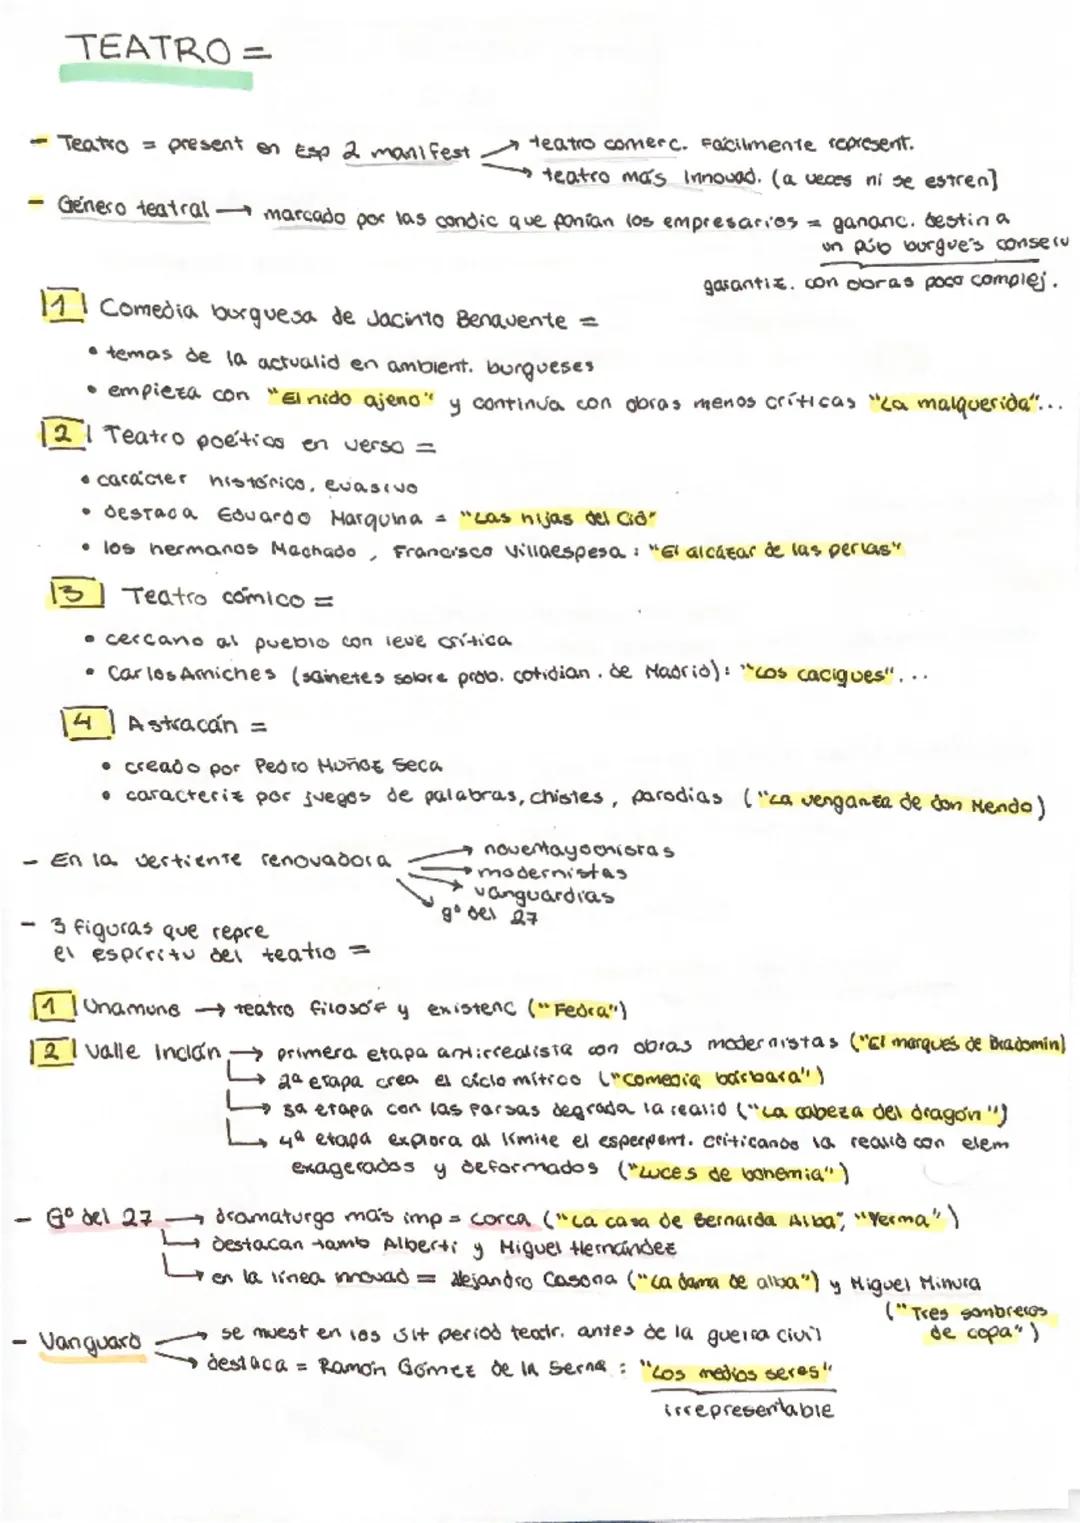 TEATRO =
- Teatro = present en Esp 2 manifest → teatro comerc. Facilmente represent.
→ teatro más innovad. (a veces ni se estren]
- Género teatral → marcado por las condic que ponían los empresarios = gananc. destin a
un púb burgués conserv
garantiz. con obras poco complej.
1 Comedia burguesa de Jacinto Benavente =
• temas de la actualid en ambient. burgueses
• empieza con "El nido ajeno" y continúa con obras menos críticas "La malquerida"...
2 Teatro poético en verso =
• carácter histórico, evasivo
• destaca Eduardo Marquina = "Las hijas del Cid"
• los hermanos Machado, Francisco Villaespesa: "El alcázar de las perlas"
3 Teatro cómico =
• cercano al pueblo con leve crítica
• Carlos Arniches (sainetes sobre prob. cotidian. de Madrid): "Los caciques"...
4 Astracán =
• creado por Pedro Muñoz Seca
• caracteriz por juegos de palabras, chistes, parodias ("La venganza de don Mendo)
- En la vertiente renovadora → noventayochistas
→ modernistas
→ vanguardias
→ gº del 27
- 3 figuras que repre
el espíritu del teatro =
1 Unamuno → teatro filosóf y existenc ("Fedra")
2 Valle Inclán → primera etapa antirrealista con obras modernistas ("El marqués de Bradomín)
→ 2ª etapa crea el ciclo mítico ("Comedia bárbara")
→ 3a etapa con las farsas degrada la realid ("La cabeza del dragón")
→ 4ª etapa explora al límite el esperpent. criticando la realid con elem
exagerados y deformados ("Luces de bohemia")
- Gº del 27 → dramaturgo más imp = Lorca ("La casa de Bernarda Alba", "Yerma")
→ destacan tamb Alberti y Miguel Hernández
→ en la línea innovad = Alejandro Casona ("La dama de alba") y Miguel Mihura
("Tres sombreros
de copa")
- Vanguard → se muest en los últ period teatr. antes de la guerra civil
→ destaca = Ramón Gómez de la Serna: "Los medios seres"
irrepresentable